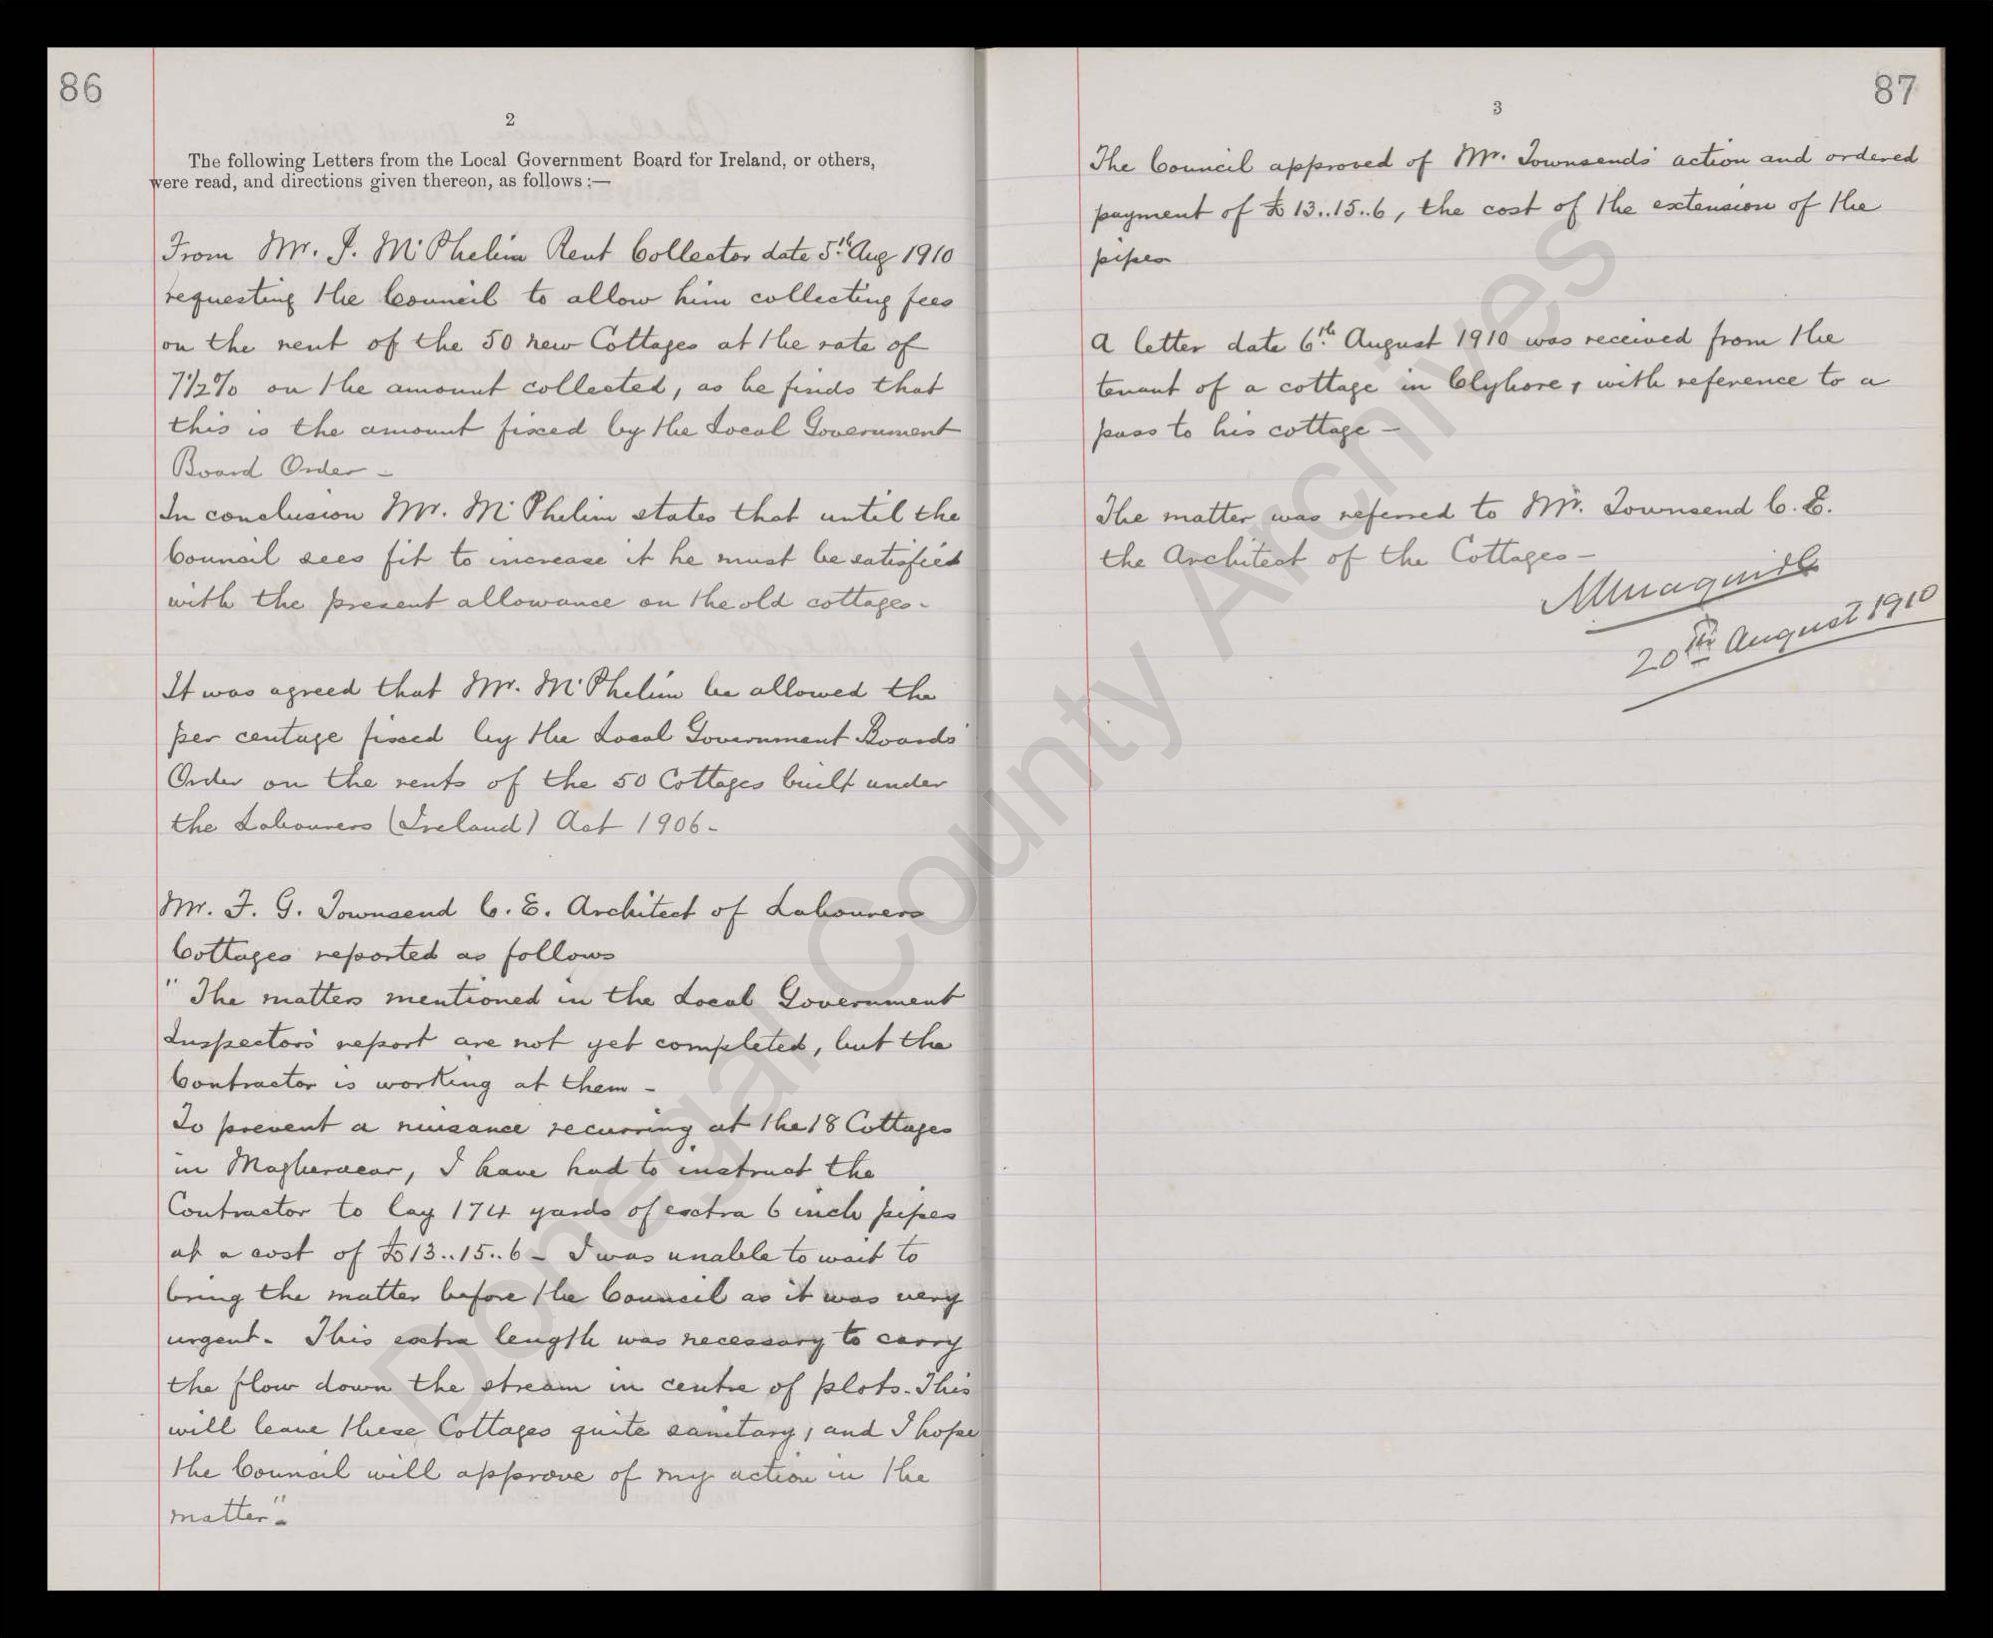 86
2
The following Letters from the Local Government Board for Ireland, or others,
were read, and directions given thereon, as follows:—
From Mr. J. McPhelim Rent Collector date 5th Aug 1910
requesting the Council to allow him collecting fees
on the rent of the 50 new Cottages at the rate of
7½% on the amount collected, as he finds that
this is the amount fixed by the Local Government
Board Order –
In conclusion Mr. McPhelim states that until the
Council sees fit to increase it he must be satisfied
with the present allowance on the old cottages.
It was agreed that Mr. McPhelim be allowed the
per centage fixed by the Local Government Boards'
Order on the rents of the 50 Cottages built under
the Labourers (Ireland) Act 1906 –
Mr. F. G. Townsend C. E. Architect of Labourers
Cottages reported as follows
" The matters mentioned in the Local Government
Inspectors' report are not yet completed, but the
Contractor is working at them –
To prevent a nuisance recurring at the 18 Cottages
in Magheracar, I have had to instruct the
Contractor to lay 174 yards of extra 6 inch pipes
at a cost of £13..15..6 – I was unable to wait to
bring the matter before the Council as it was very
urgent. This extra length was necessary to carry
the flow down the stream in centre of plots. This
will leave these Cottages quite sanitary, and I hope
the Council will approve of my action in the
matter".
87
3
The Council approved of Mr. Townsends' action and ordered
payment of £13..15..6, the cost of the extension of the
pipes
A letter date 6th August 1910 was received from the
tenant of a cottage in Clyhore, with reference to a
pass to his cottage –
The matter was referred to Mr. Townsend C. E.
the Architect of the Cottages –
20th August 1910
Donegal County Archives